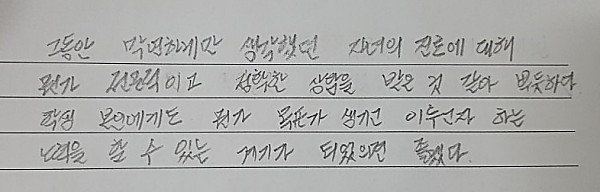 그동안 막연하게만 생각했던 자녀의 진로에 대해
뭔가 전문적이고 정확한 상담을 받은 것 같아 뿌듯하다.
학생 본인에게도 뭔가 목표가 생기고 이루고자 하는
노력을 할 수 있는 계기가 되었으면 좋겠다.